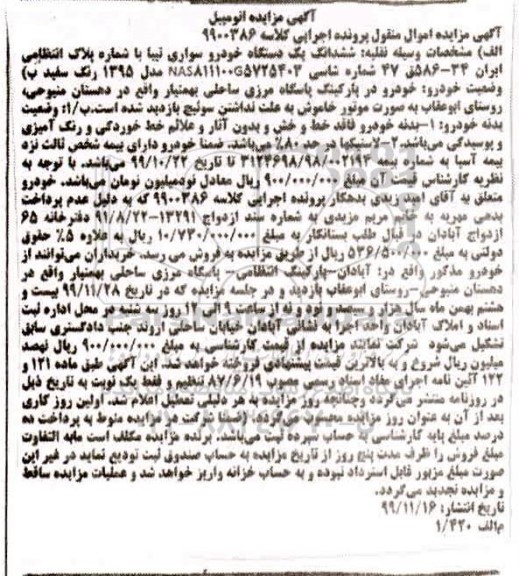 آگهی مزایده اتومبیل
آگهی مزایده اموال منقول پرونده اجرایی کلاسه ۹۹۰۰۳۸۶
الف) مشخصات وسیله نقلیه: ششدانگ یک دستگاه خودرو سواری تیبا با شماره پلاک انتظامی
ایران ۳۴-۵۸۶ق ۴۷ شماره شاسی NAS۸۱۱۱۰۰G۵۷۲۵۴۰۳ مدل ۱۳۹۵ رنگ سفید ب)
وضعیت خودرو: خودرو در پارکینگ پاسگاه مرزی ساحلی بهمنیار واقع در دهستان منیوحی،
روستای ابوعقاب به صورت موتور خاموش به علت نداشتن سوئیچ بازدید شده است.ب/۱: وضعیت
بدنه خودرو: ۱-بدنه خودرو فاقد خط و خش و بدون آثار و علائم خط خوردگی و رنگ آمیزی
و پوسیدگی می‌باشد. ۲-لاستیکها در حد ۸۰٪ می‌باشد. ضمنا خودرو دارای بیمه شخص ثالث نزد
بیمه آسیا به شماره بیمه ۳۱۲۴۶۹۸/۹۸/۰۰۲۱۹۳ تا تاریخ ۹۹/۱۰/۲۲ می‌باشد. با توجه به
نظریه کارشناس قیمت آن مبلغ ۹۰۰/۰۰۰/۰۰۰ ریال معادل نودمیلیون تومان می‌باشد. خودرو
متعلق به آقای امید زیدی بدهکار پرونده اجرایی کلاسه ۹۹۰۰۳۸۶ که به دلیل عدم پرداخت
بدهی مهریه به خانم مریم مزیدی به شماره سند ازدواج ۱۳۲۹۱-۹۱/۸/۲۲ دفترخانه ۶۵
ازدواج آبادان در قبال طلب بستانکار به مبلغ ۱۰/۷۳۰/۰۰۰/۰۰۰ ریال به علاوه ۵٪ حقوق
دولتی به مبلغ ۵۳۶/۵۰۰/۰۰۰ ریال از طریق مزایده به فروش می رسد. خریداران می‌توانند از
خودرو مذکور واقع در: آبادان-پارکینگ انتظامی- پاسگاه مرزی ساحلی بهمنیار واقع در
دهستان منیوحی-روستای ابوعقاب بازدید و در جلسه مزایده که در تاریخ ۹۹/۱۱/۲۸ بیست و
هشتم بهمن ماه سال هزار و سیصد و نود و نه از ساعت ۹ الی ۱۲ روز سه شنبه در محل اداره ثبت
اسناد و املاک آبادان واحد اجرا به نشانی آبادان خیابان ساحلی اروند جنب دادگستری سابق
تشکیل می‌شود شرکت نمایند مزایده از قیمت کارشناسی به مبلغ ۹۰۰/۰۰۰/۰۰۰ ریال نهصد
میلیون ریال شروع و به بالاترین قیمت پیشنهادی فروخته خواهد شد. این آگهی طبق ماده ۱۲۱ و
۱۲۲ آئین نامه اجرای مفاد اسناد رسمی مصوب ۸۷/۶/۱۹ تنظیم و فقط یک نوبت به تاریخ ذیل
در روزنامه منتشر می‌گردد وچنانچه روز مزایده به هر دلیلی تعطیل اعلام شد. اولین روز کاری
بعد از آن به عنوان روز مزایده محسوب می‌گردد. ضمنا شرکت در مزایده منوط به پرداخت ده
درصد مبلغ پایه کارشناسی به حساب سپرده ثبت می‌باشد. برنده مزایده مکلف است مابه التفاوت
مبلغ فروش را ظرف مدت پنج روز از تاریخ مزایده به حساب صندوق ثبت تودیع نماید در غیر این
صورت مبلغ مزبور قابل استرداد نبوده و به حساب خزانه واریز خواهد شد و عملیات مزایده ساقط
و مزایده تجدید می‌گردد.
تاریخ انتشار: ۹۹/۱۱/۱۶
م/الف ۱/۴۲۰